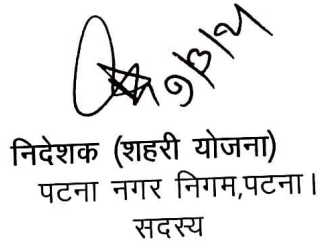 निदेशक (शहरी योजना)
पटना नगर निगम,पटना।
सदस्य